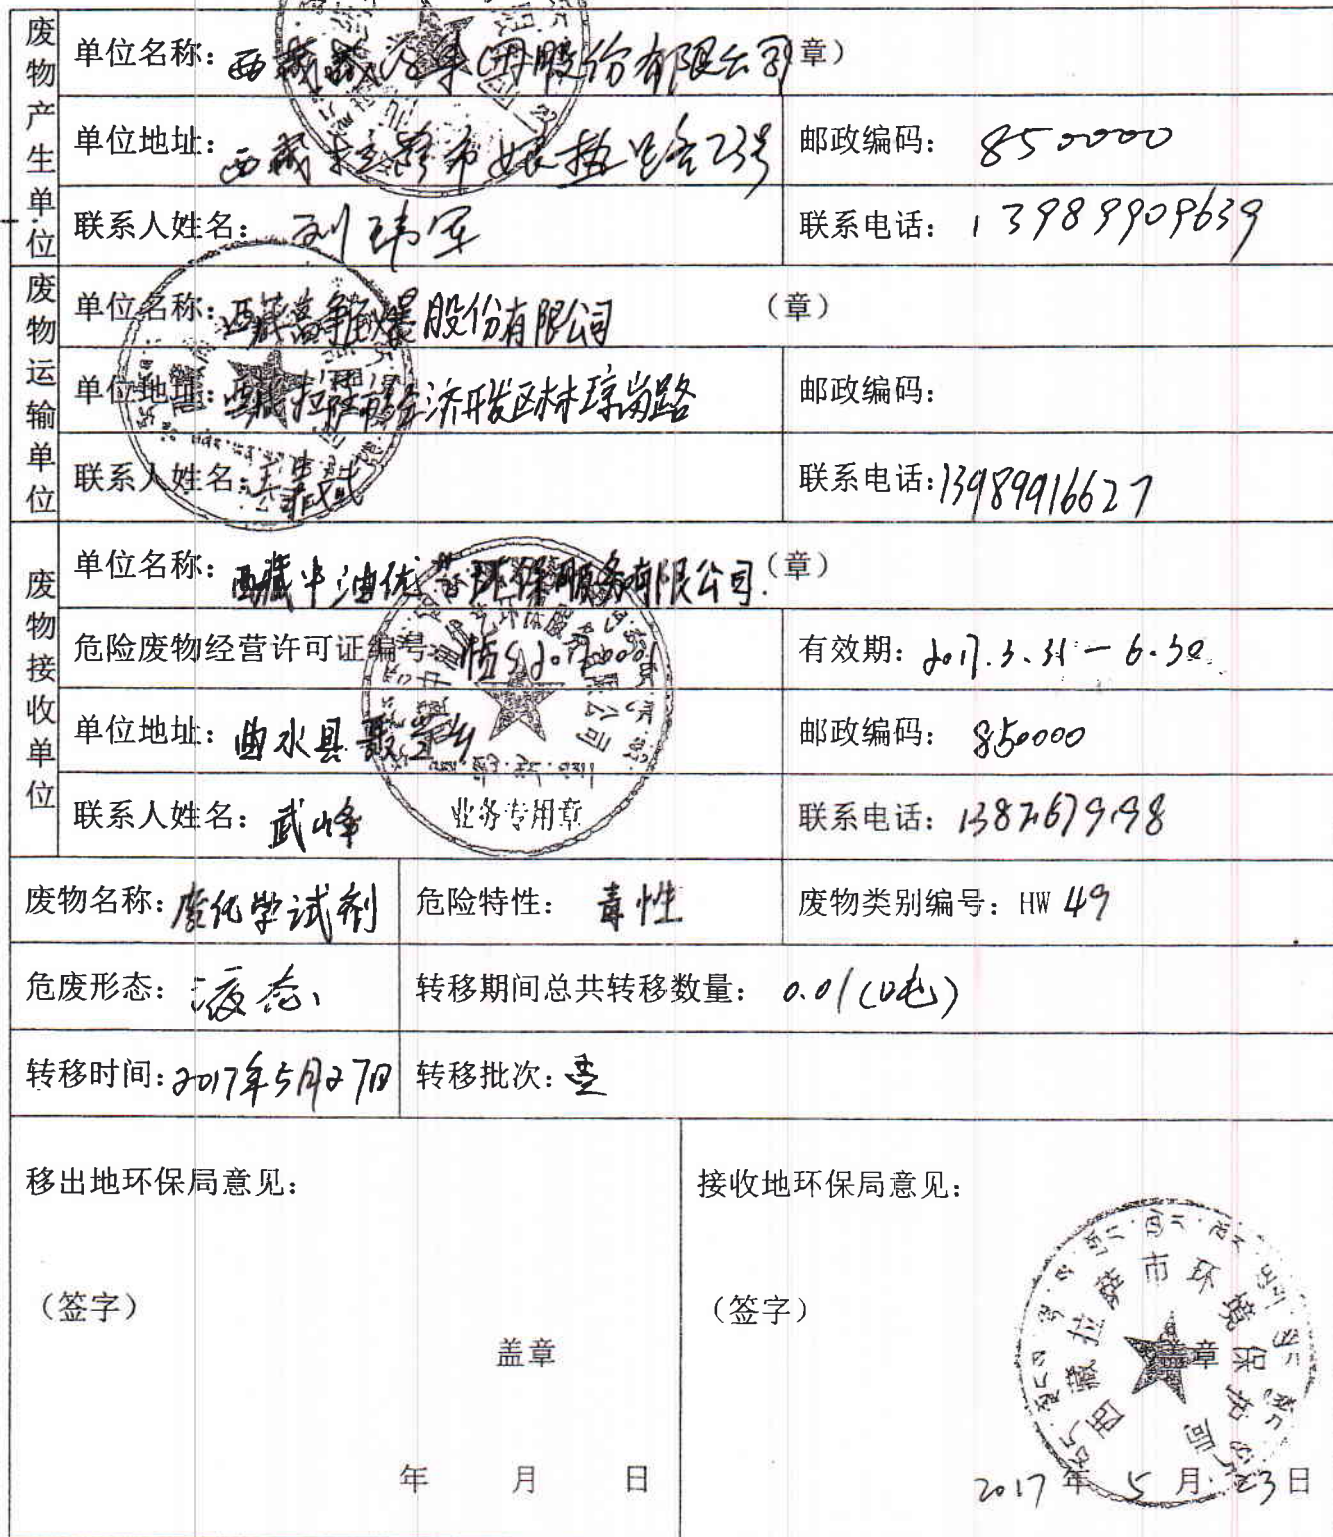 废物产生单位
单位名称：西藏 集团股份有限公司 章）
单位地址：西藏拉萨市娘热路23号 邮政编码：850000
联系人姓名：刘玮军 联系电话：13989909639
废物运输单位
单位名称：西藏高争民爆股份有限公司 （章）
单位地址：西藏拉萨市经济开发区林琼岗路 邮政编码：
联系人姓名： 联系电话：13989916627
废物接收单位
单位名称：西藏中油优艺环保服务有限公司. （章）
危险废物经营许可证编号 有效期：2017.3.31-6.30
单位地址：曲水县聂当乡 邮政编码：850000
联系人姓名：武峰 联系电话：
业务专用章
废物名称：废化学试剂 危险特性：毒性 废物类别编号：HW 49
危废形态：液态 转移期间总共转移数量：0.01(吨)
转移时间：2017年5月27日 转移批次：壹
移出地环保局意见： 接收地环保局意见：
（签字） （签字）
盖章 盖章
西藏拉萨市环境保护局
年 月 日 2017年 5月 23日